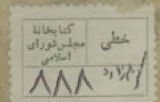 کتابخانهٔ
مجلس شورای
اسلامی
خطی
۸۸۸